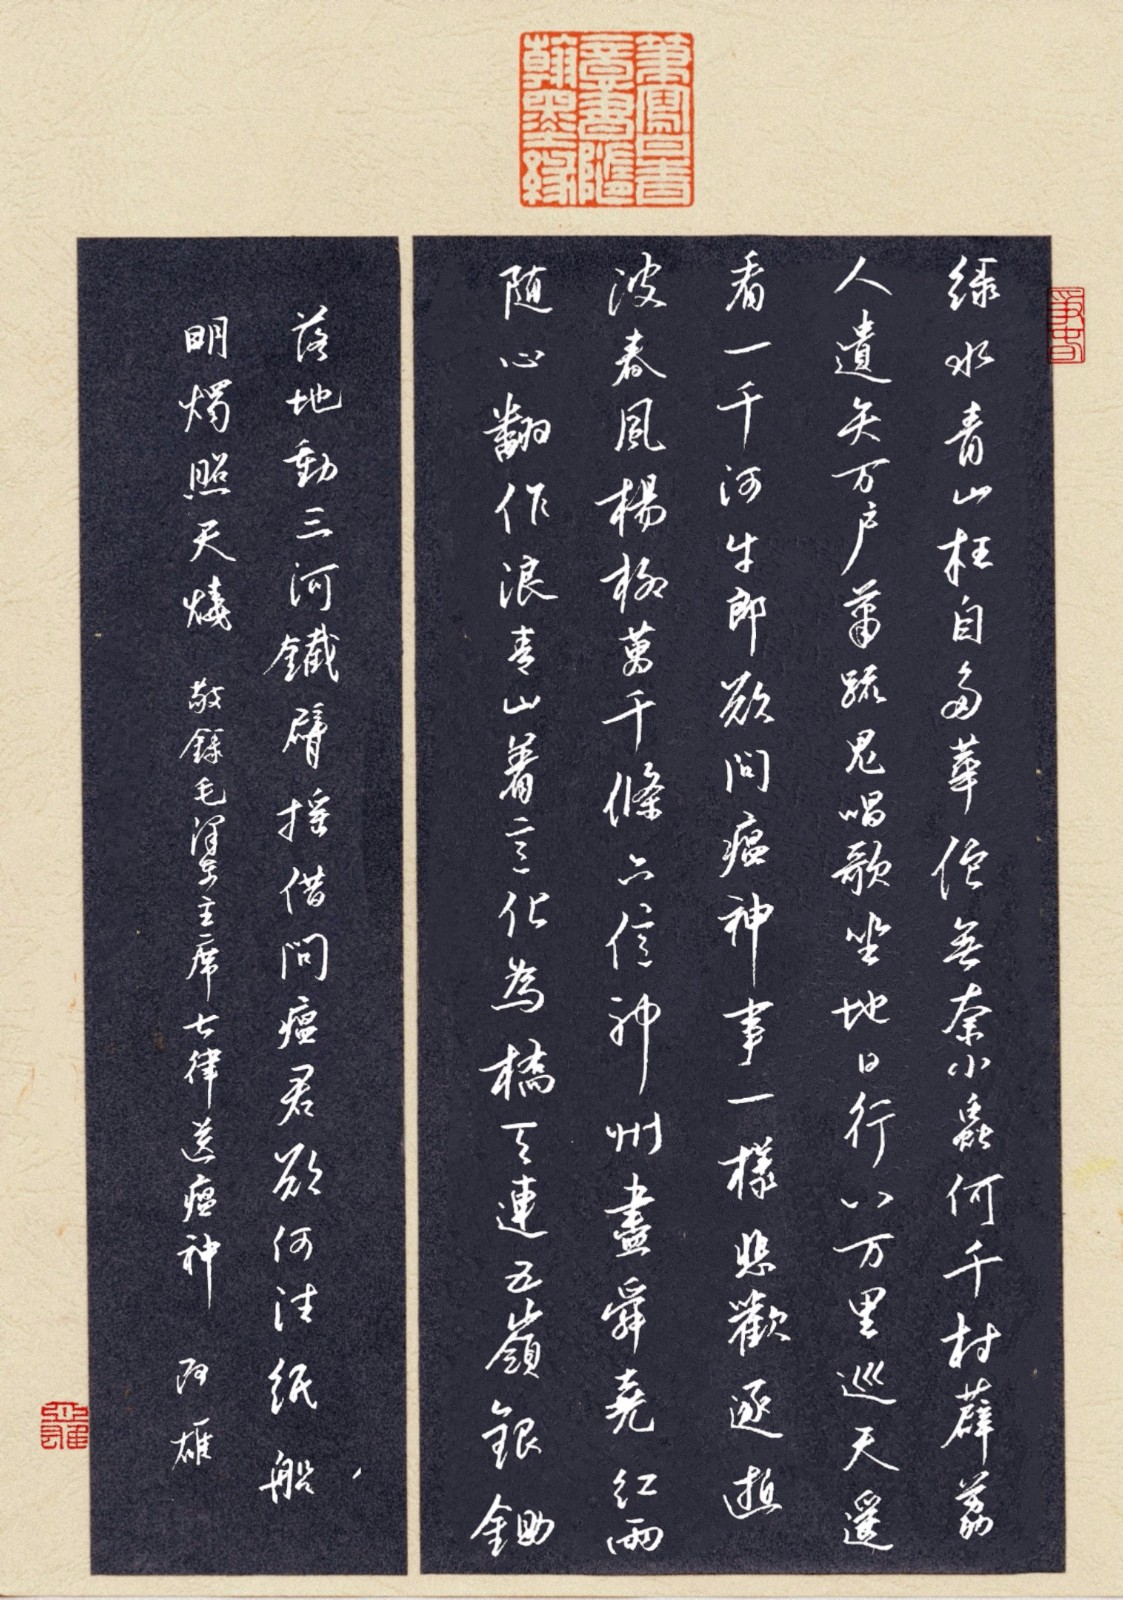 翰墨緣
绿水青山枉自多華佗無奈小蟲何千村薜荔
人遺矢万户萧疏鬼唱歌坐地日行八万里巡天遥
看一千河牛郎欲问瘟神事一樣悲歡逐逝
波春風楊柳萬千條六信神州盡舜堯红雨
随心翻作浪青山着意化為橋天連五嶺銀鋤
落地動三河鐵臂摇借問瘟君欲何往紙船
明燭照天燒 敬錄毛澤東主席七律送瘟神 雄